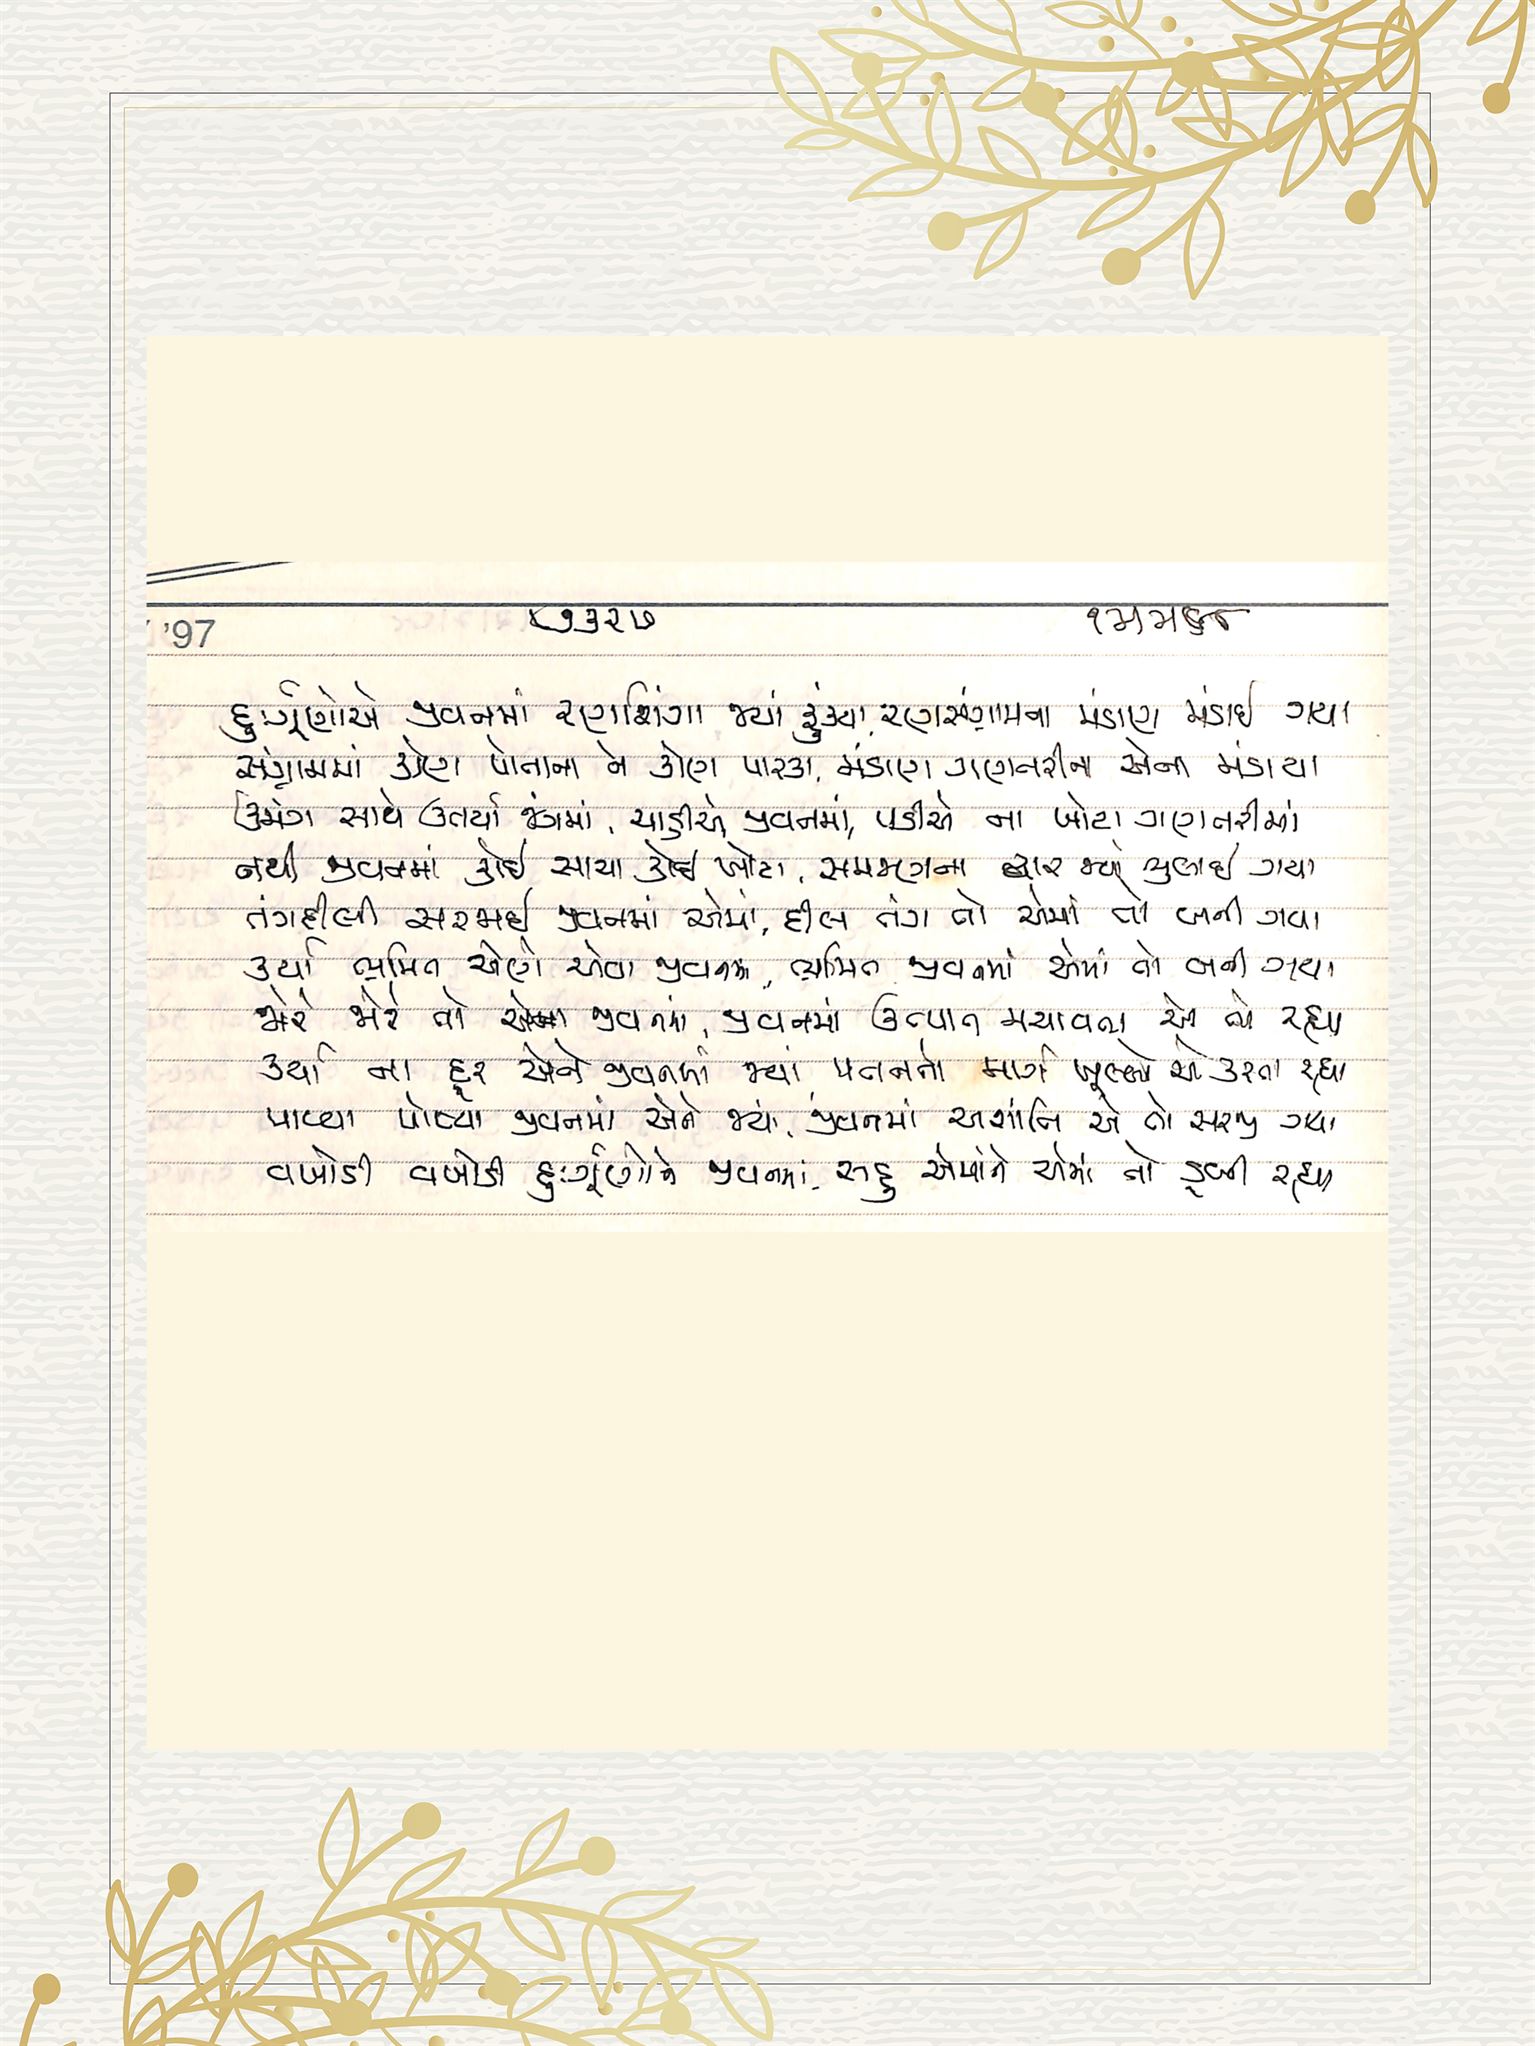 '97
દુઃર્ગુણોએ જીવનમાં રણશિંગા જ્યાં ફુંક્યા, રણસંગ્રામના મંડાણ મંડાઈ ગયા
સંગ્રામમાં કોણ પોતાના ને કોણ પારકા, મંડાણ ગણતરીના એના મંડાયા
ઉમંગ સાથે ઉતર્યા જંગમાં, જીવનમાં, પડીએ ના ખોટા ગણતરીમાં
નથી જીવનમાં કોઈ સાચા કોઈ ખોટા, સમજણના દ્વાર જ્યાં ભુલાઈ ગયા
તંગદીલી સરજાઈ જીવનમાં એમાં, દીલ તંગ તો એમાં તો બની ગયા
કર્યા ભ્રમિત એણે એવા જીવનમાં, ભ્રમિત જીવનમાં એમાં તો બની ગયા
જોરે જોરે તો જીવનમાં, જીવનમાં ઉત્પાત મચાવતા એ તો રહ્યા
કર્યા ના દૂર એને જીવનમાં જ્યાં પતનનો માર્ગ ખૂલ્લો એ કરતા રહ્યા
પાળ્યા પોષ્યા જીવનમાં એને જ્યાં, જીવનમાં અશાંતિ એ તો સરજી ગયા
વખોડી વખોડી દુઃર્ગુણોને જીવનમાં, સહુ એમાંને એમાં તો ડૂબી રહ્યા